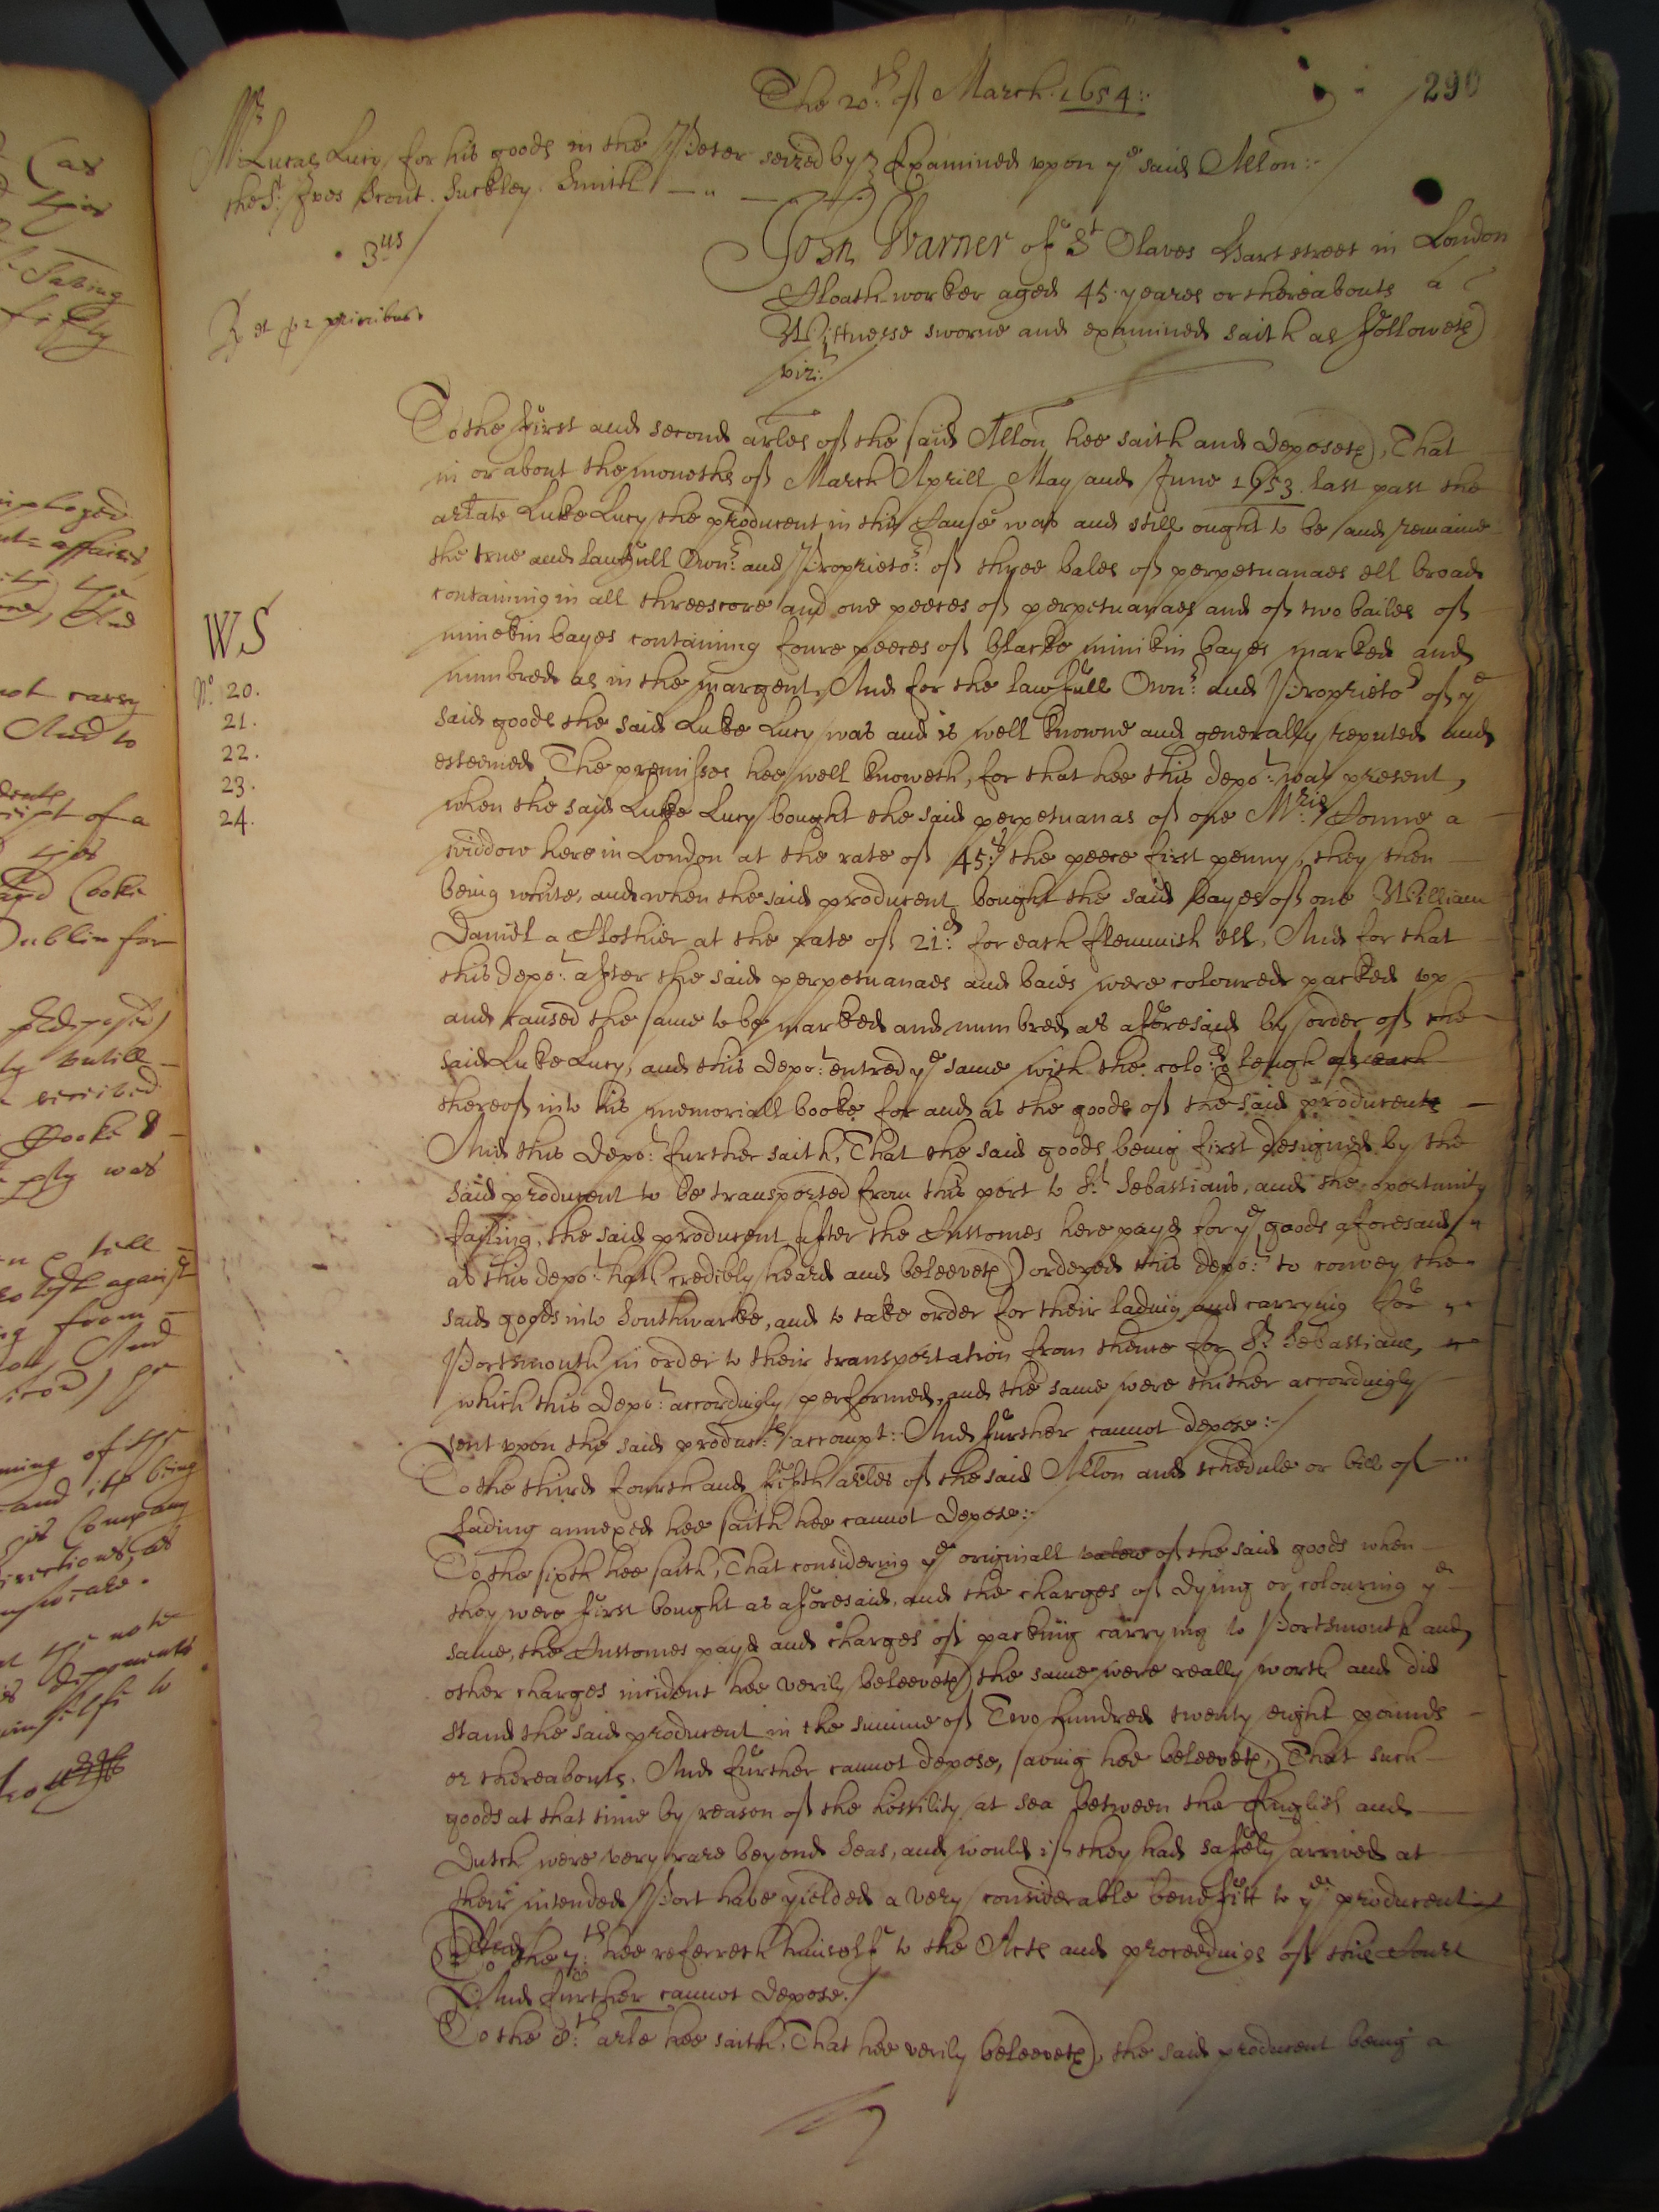 The 20th. of March. 1654:.
290
Mr. Lucas Lucie for his goods in the Peter seized by
the St. Yves Prout. Suckley. Smith
Examined upon ye said Allon:-
3us
Rp. et pr primibus
John Warner of St Olaves Hart street in London
Cloathworker aged 45 yeares or thereabouts a
Witnesse sworne and examined saith as followeth
vizt:/
To the first and second arles of the said Allon hee saith and deposeth, That
in or about the moneths of March Aprill May and June 1653. last past the
arlate Luke Lucy the producent in this Cause was and still ought to be and remaine
the true and lawfull Ownr: and Proprietor: of three bales of perpetuanaes ell broad
containing in all threescore and one peeces of perpetuanaes and of two bailes of
minekin bayes containing foure peeces of blacke minikin bayes marked and
numbred as in the margent, And for the lawfull Ownr: and Proprietor of ye
said goods the said Luke Lucy was and is well knowne and generally reputed and
esteemed The premisses hee well knoweth, for that hee this depot: was present,
when the said Luke Lucy bought the said perpetuanas of one Mris Conne a
widdow here in London at the rate of 45:s the peece first penny, they then
being white, and when the said producent bought the said bayes of one William
Daniel a Clothier at the rate of 21:d for each flemmish ell, And for that
this depot: after the said perpetuanaes and baies were coloured packed up
and caused the same to be marked and numbred as aforesaid by order of the
said Luke Lucy, and this depot: entred ye same with the color: & lengh of each
thereof into his memoriall booke for and as the goods of the said producente
And this depot: further saith, That the said goods being first designed by the
said producent to be transported from this port to St. Sebastians, and the oportunity
failing, the said producent after the Customes here payd for ye goods aforesaid
as this depot: hath credibly heard and beleeveth) ordered this depot: to convey the
said goods into Southwarke, and to take order for their lading and carrying for
Portsmouth in order to their transportation from thence for St. Sebastians,
which this depot: accordingly performed, and the same were thither accordingly
sent upon the said products: accompt: And further cannot depose:-
To the third fourth and fifth arles of the said Allon and schedule or bill of
lading annexed hee saith hee cannot depose:-
To the sixth hee saith, That considering ye originall valew of the said goods when
they were first bought as aforesaid, and the charges of dying or colouring ye
same, the Customes payd and charges of packing carrying to Portsmouth and
other charges incident hee verily beleeveth, the same were really worth and did
stand the said producent in the summe of Two hundred twenty eight pounds
or thereabouts. And further cannot depose, saving hee beleeveth, That such
goods at that time by reason of the hostility at sea between the English and
Dutch were very rare beyond Seas, and would if they had safely arrived at
their intended Port have yielded a very considerable benefitt to ye producent
To the 7:th hee referreth himselfe to the Acts and proceedings of this Court
And further cannot depose./
To the 8:th arle hee saith, That hee verily beleeveth, the said producent being a
WS
No. 20.
21.
22.
23.
24.